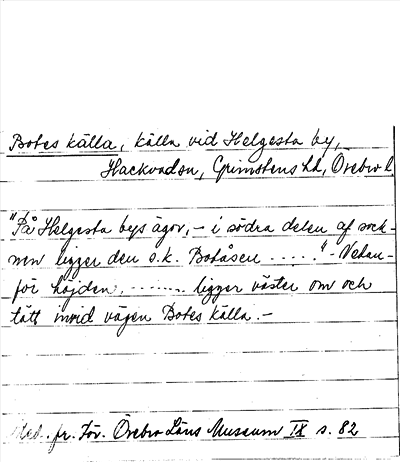 Botes källa, källa vid Helgesta by,
Hackvadsn, Grimstens hd, Örebro l.
"På Helgesta bys ägor, - i södra delen af sock-
nen ligger den s.k. Botåsen ....." - Nedan-
för höjden, ........ ligger väster om och
tätt invid vägen Botes källa. -
Med. fr. För. Örebro Läns Museum IX s. 82